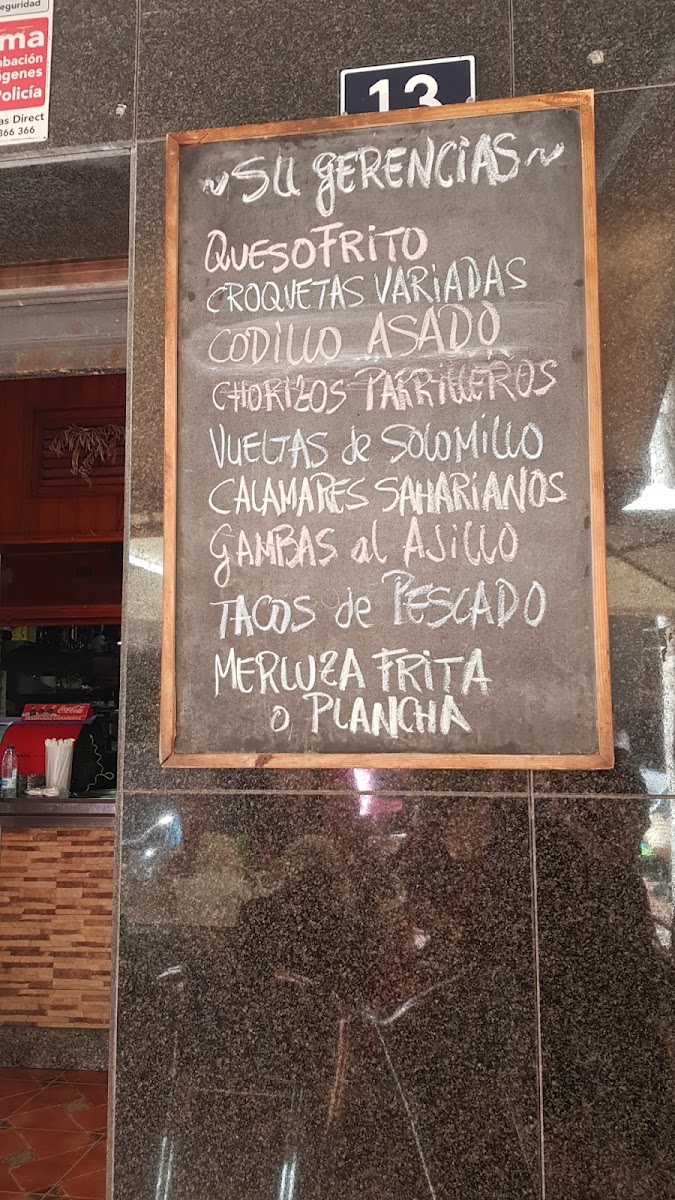 eguridad
ma
bación
ágenes
Policía
as Direct
366 366
13
~SU GERENCIAS~
QUESO FRITO
CROQUETAS VARIADAS
CODILLO ASADO
CHORIZOS PARRILLEROS
VUELTAS de SOLOMILLO
CALAMARES SAHARIANOS
GAMBAS al AJILLO
TACOS de PESCADO
MERLUZA FRITA
o PLANCHA
Coca-Cola